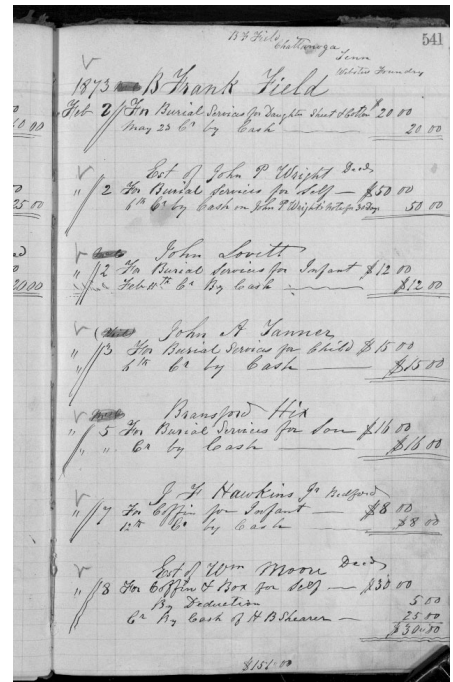 B F Field
Chattanooga
Tenn
Webster Foundry
541
1873 B Frank Field
Feb 2 For Burial Services for Daughter Sheet & Cotton $20 00
May 23 Cr by Cash 20 00
Est of John P Wright Decd
" 2 For Burial Services for Self — $50 00
6th Cr by Cash on John P Wright's note for 30 Days 50 00
John Lovett
" 2 For Burial Services for Infant $12 00
" " Feb 11th Cr By Cash $12 00
John A Tanner
" 3 For Burial Services for Child $15 00
" 6th Cr by Cash $15 00
Bransford Hix
" 5 For Burial Services for Son $16 00
" " Cr by Cash $16 00
J F Hawkins Jr Bedford
" 7 For Coffin for Infant — $8 00
12th Cr by Cash $8 00
Est of Wm Moore Decd
" 8 For Coffin & Box for Self — $30 00
By Deduction 5 00
Cr By Cash of H B Shearer — 25 00
$30 00
$151 00
00
25 00
20 00